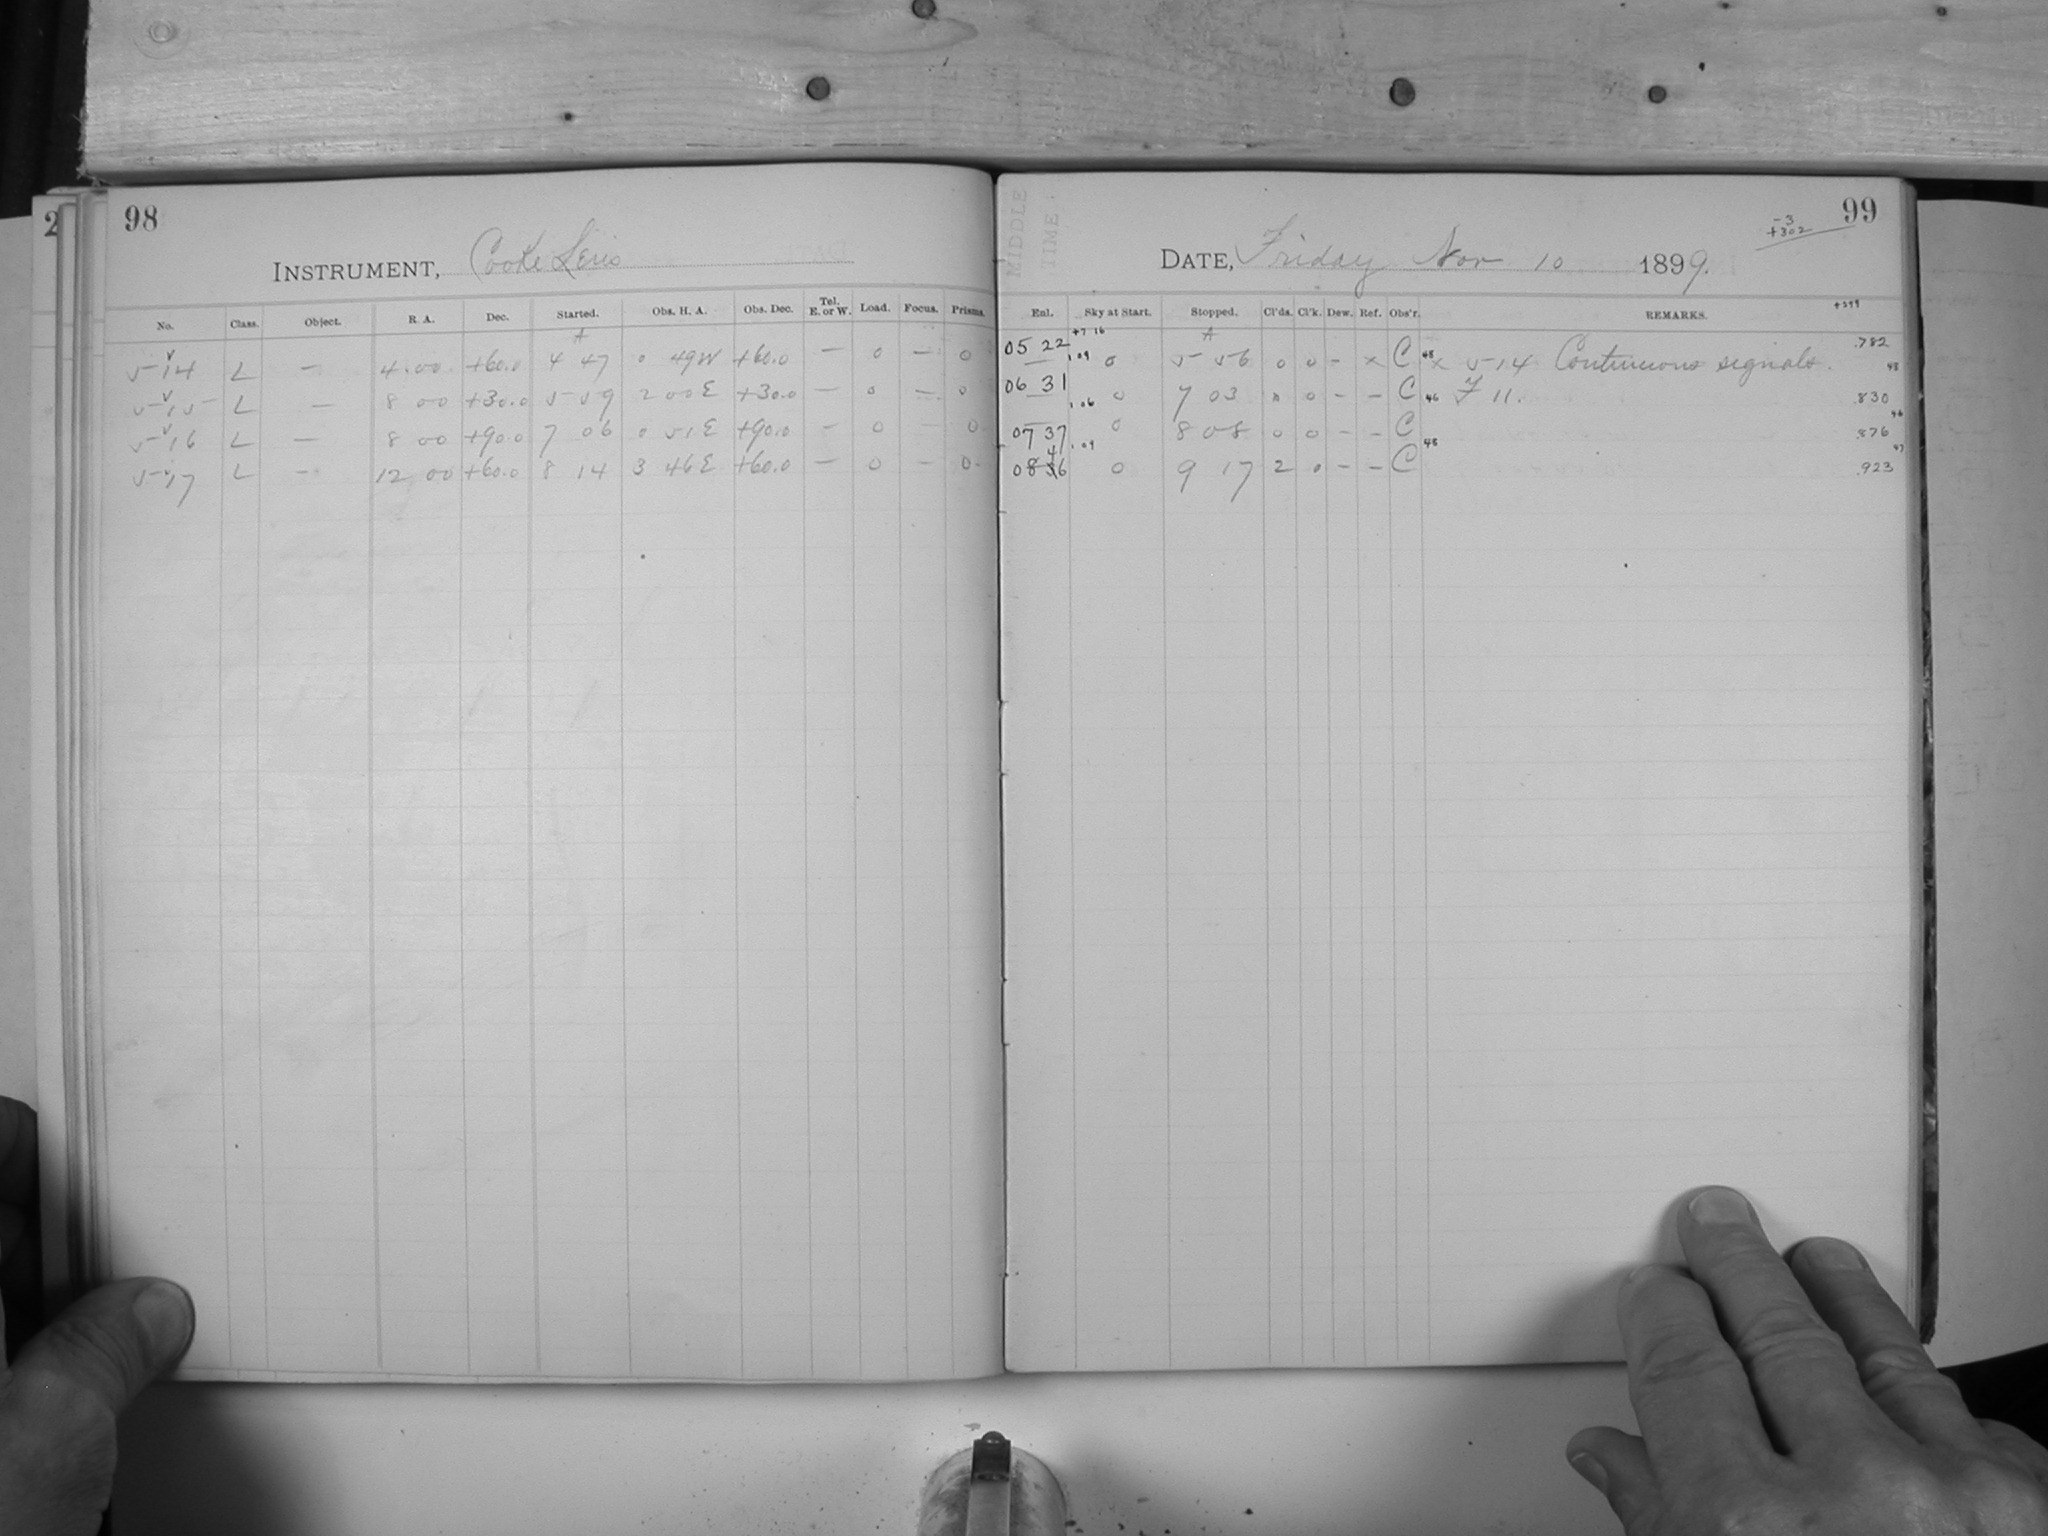 98
INSTRUMENT, Cooke Lens
No. Class. Object. R. A. Dec. Started. Obs. H. A. Obs. Dec. Tel. E. or W. Load. Focus. Prisms.
A
514 L — 4 00 +60.0 4 47 0 49W +60.0 — 0 — 0
515 L — 8 00 +30.0 5 59 2 00E +30.0 — 0 — 0
516 L — 8 00 +90.0 7 06 0 51E +90.0 — 0 0
517 L — 12 00 +60.0 8 14 3 46E +60.0 — 0 — 0
MIDDLE TIME
99
-3
+302
DATE, Friday Nov 10 1899.
Enl. Sky at Start. Stopped. Cl'ds. Cl'k. Dew. Ref. Obs'r. REMARKS. +299
+7 16 A
05 22 1.09 0 5 56 0 0 - x C 48 x 514 Continuous signals. .782 48
06 31 1.06 0 7 03 0 - - C 46 F 11. .830
07 37 1.09 0 8 08 0 0 - - C 48 .876 46
08 46 0 9 17 2 0 - - C .923 47